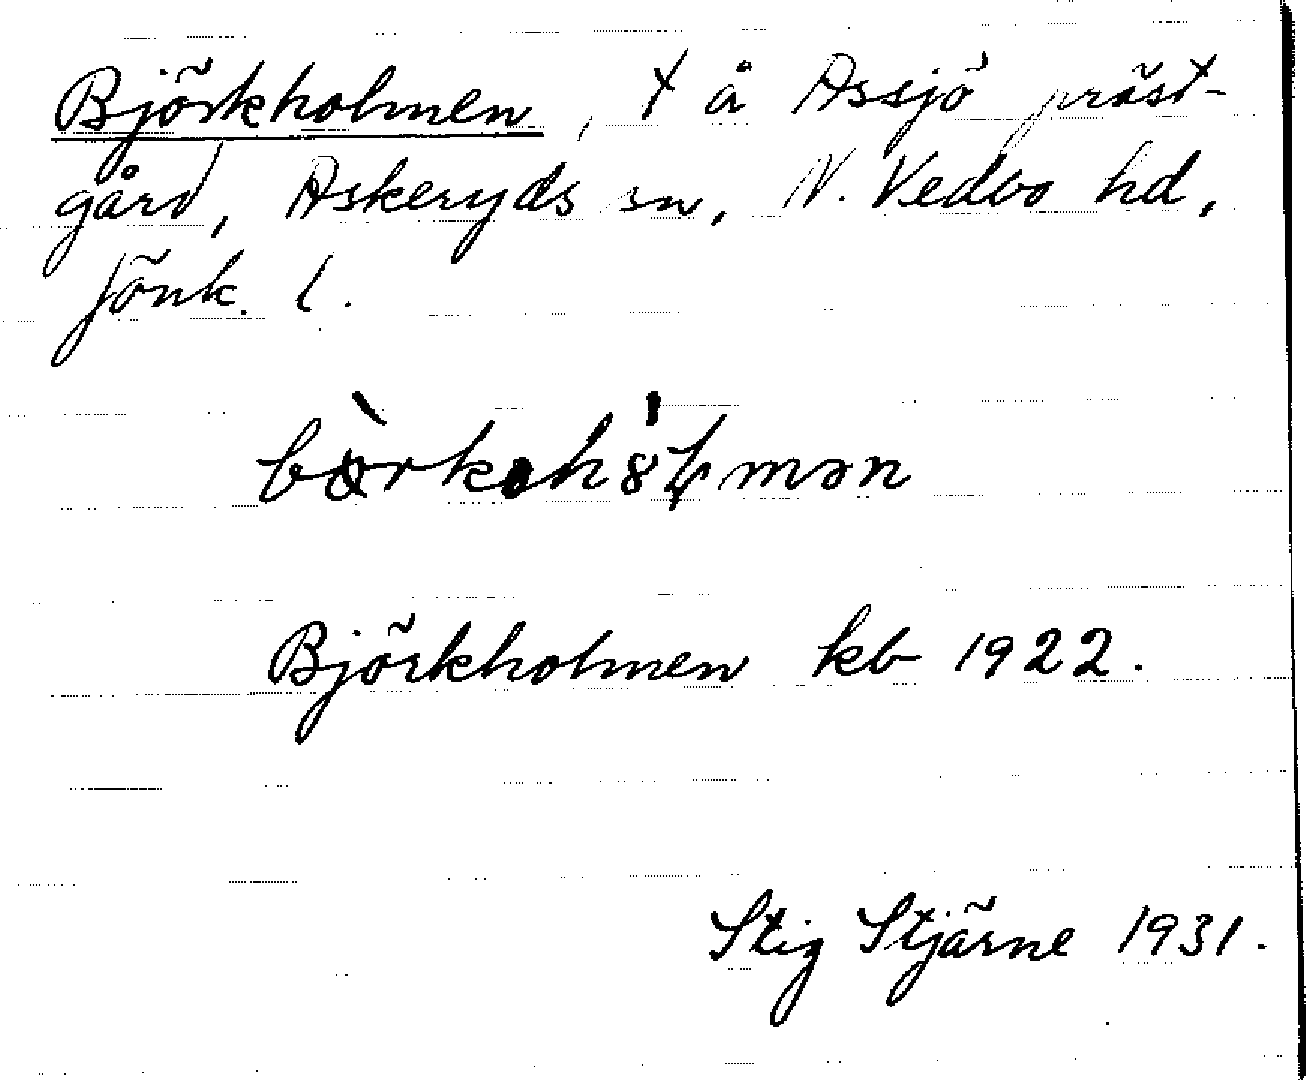 Björkholmen, t å Assjö präst-
gård, Askeryds sn, N. Vedbo hd,
Jönk. l.
Björkholmen kb 1922.
Stig Stjärne 1931.